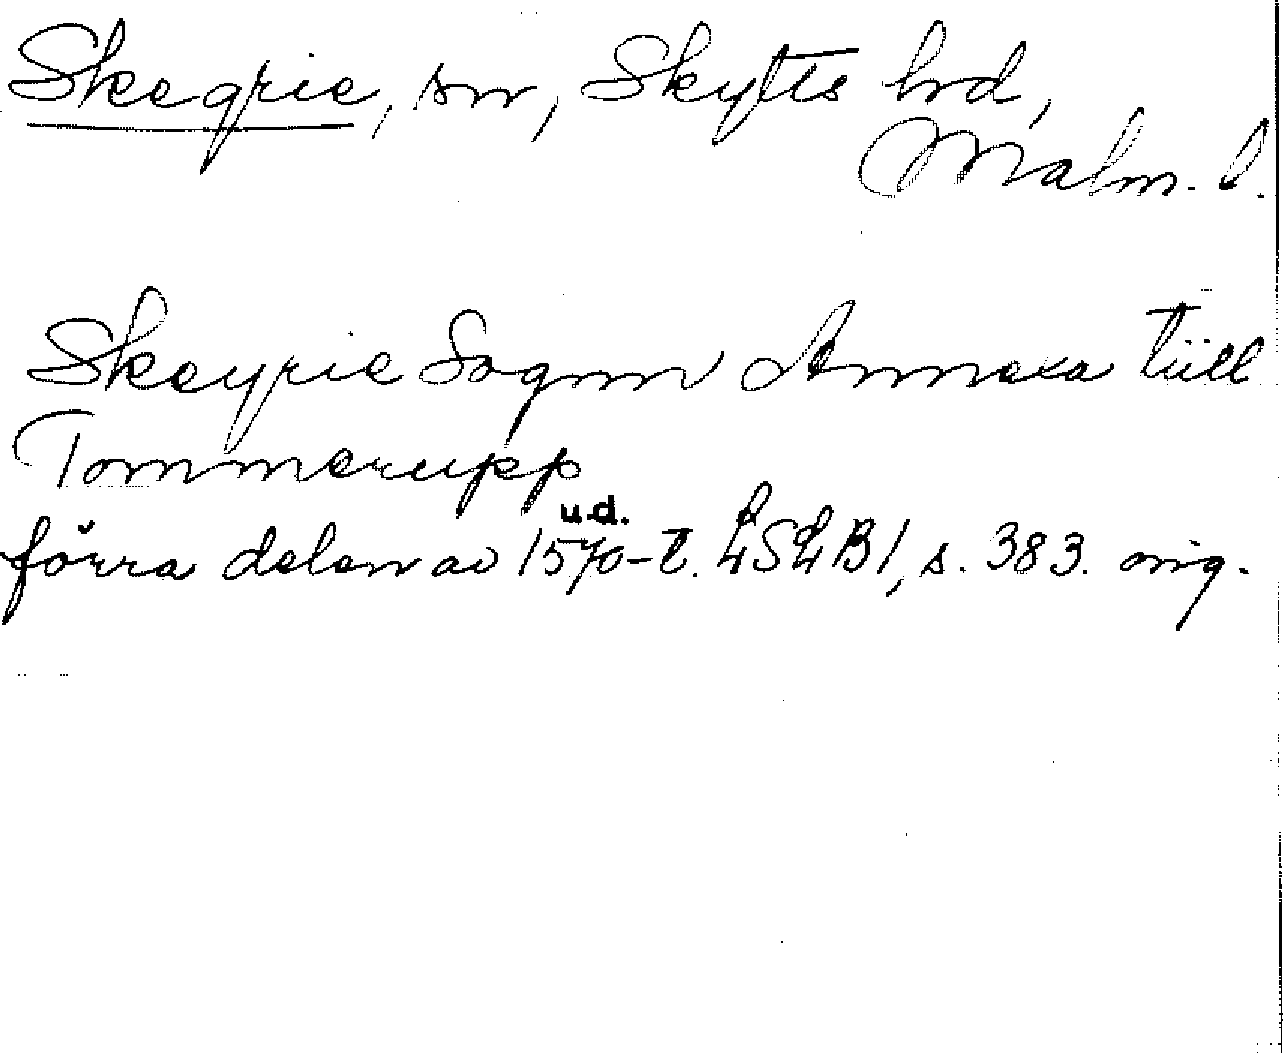 Skegrie, sn, Skytts hd,
Malm. l.
Skeyrie Sognn Annexa tiill
Tommerupp
u.d.
förra delen av 1570-t. LSLB1, s. 383. orig.